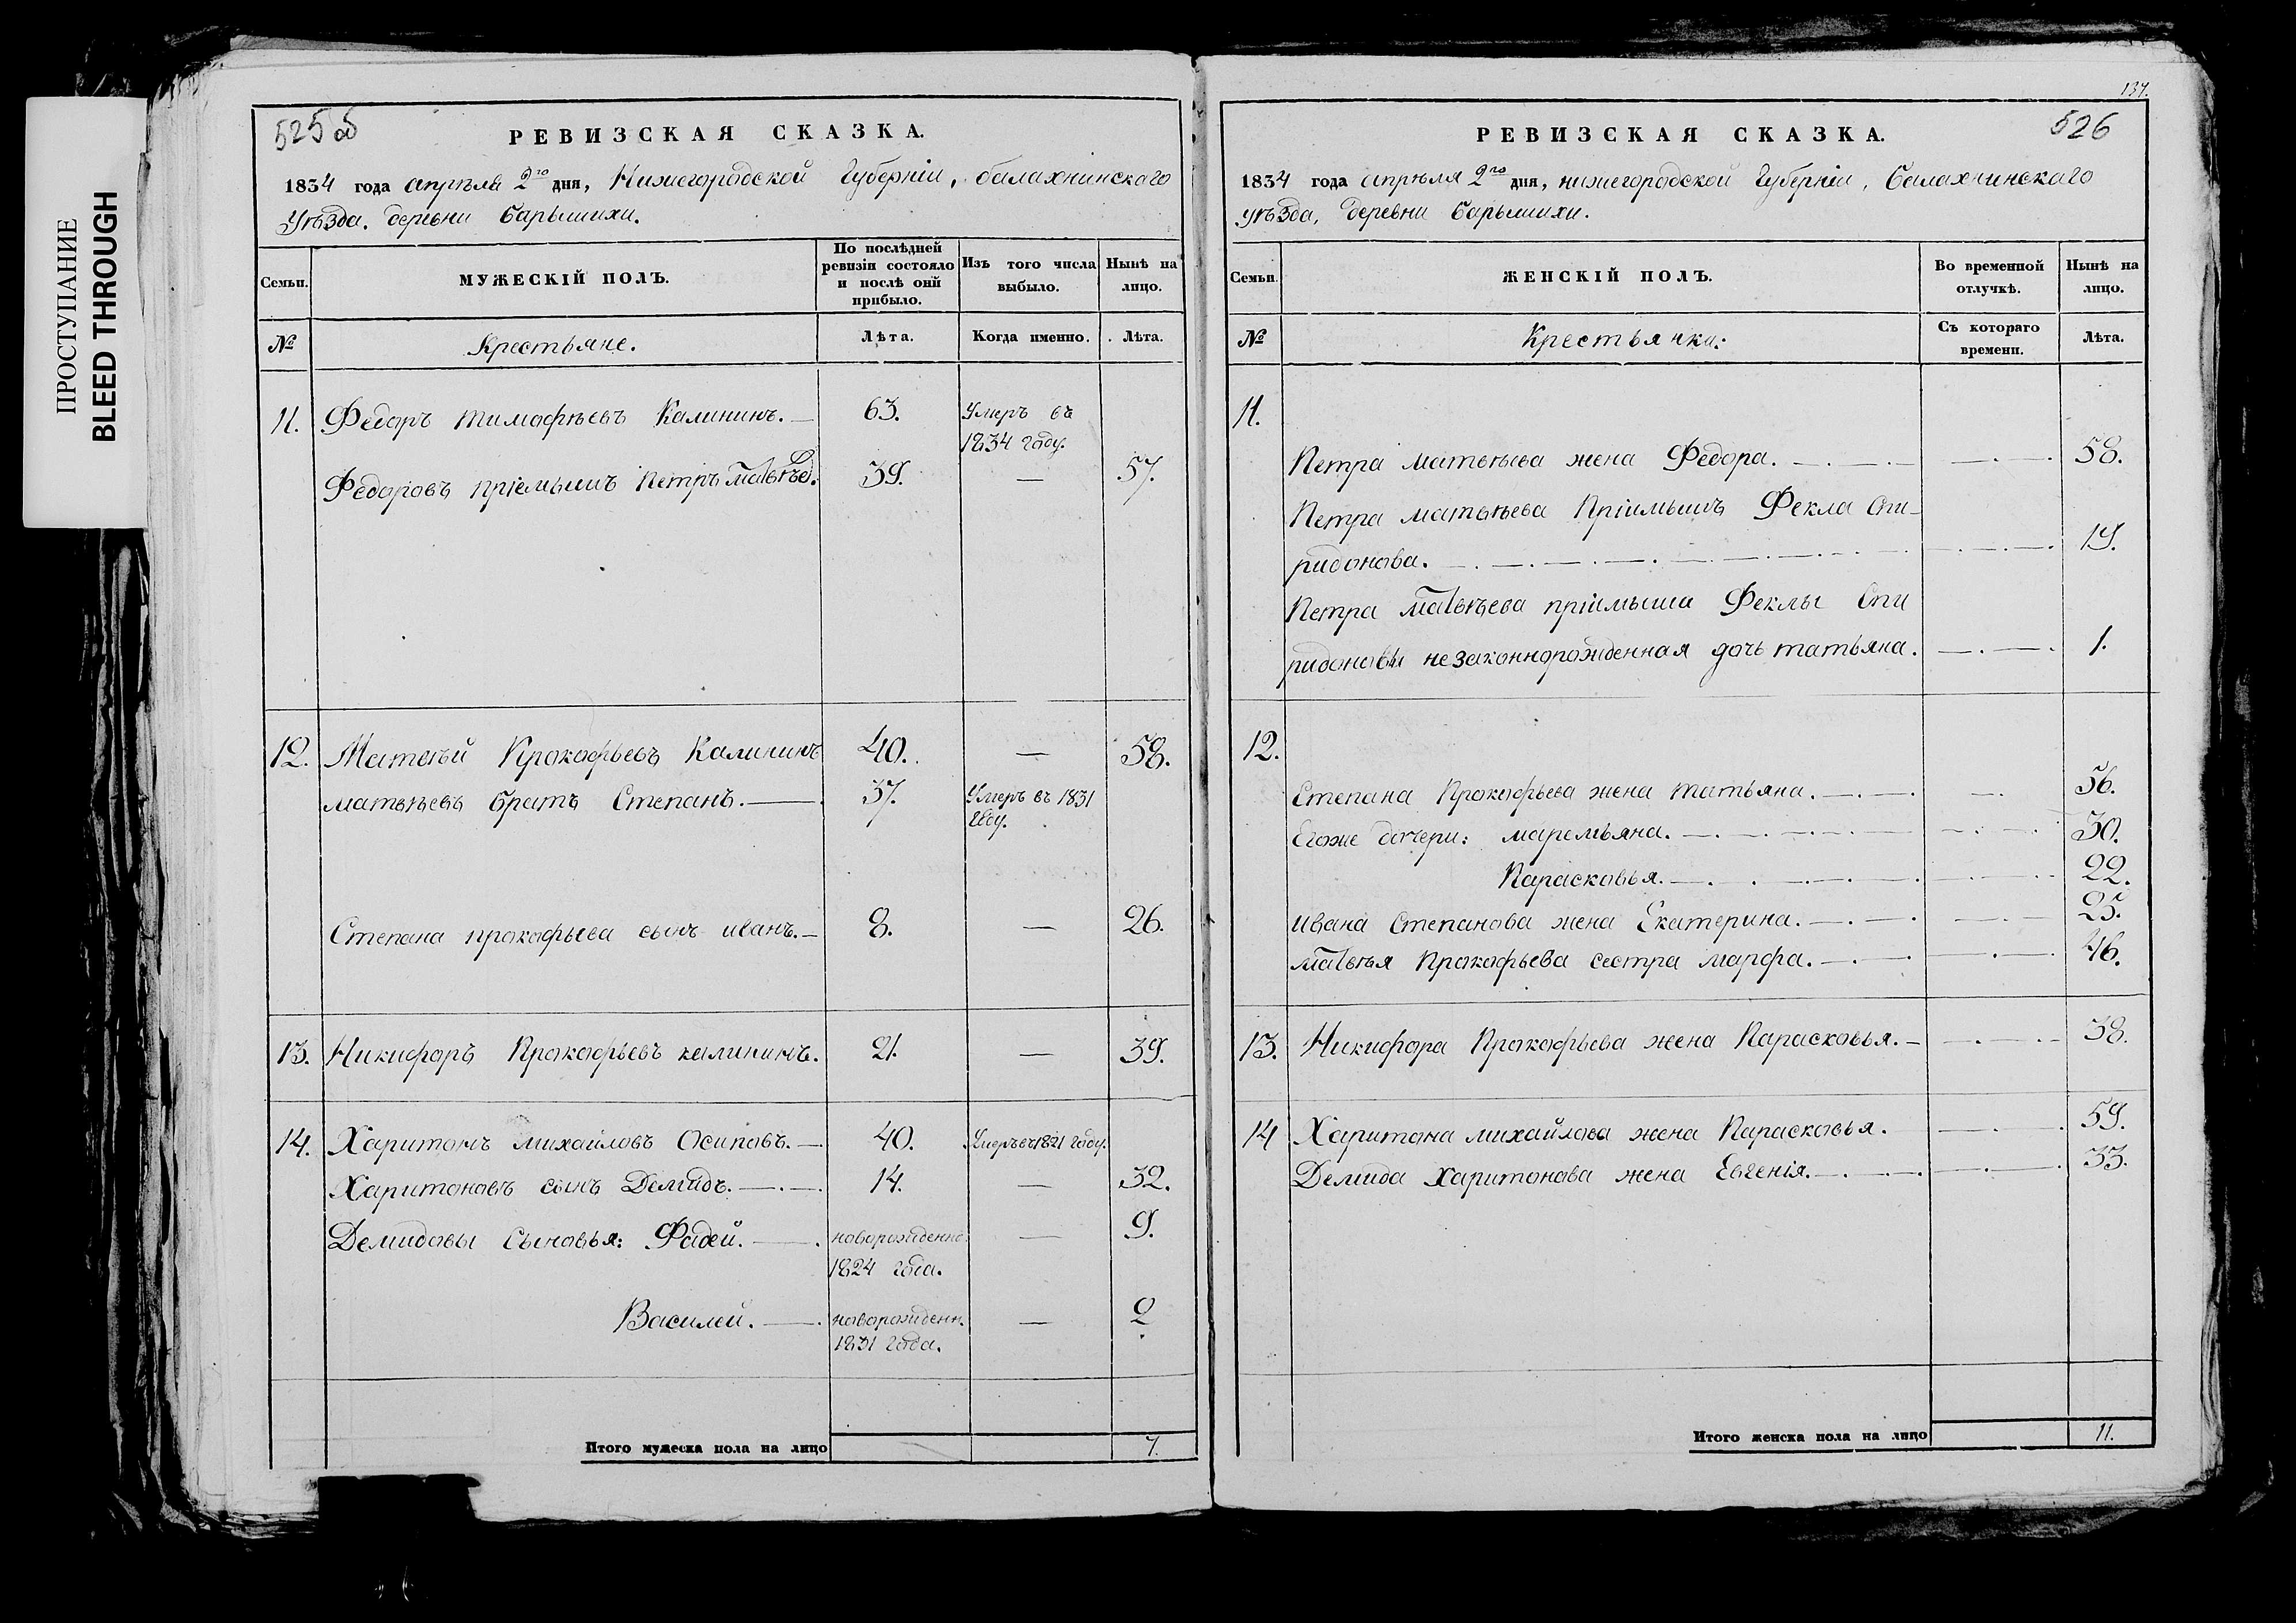 ПРОСТУПАНИЕ
BLEED THROUGH
525 об
РЕВИЗСКАЯ СКАЗКА.
1834 года апрѣля 2го дня, Нижегородской Губерніи, балахнинскаго
Уѣзда. деревни барымихи.
Семьи.
МУЖЕСКІЙ ПОЛЪ.
По послѣдней ревизіи состояло и послѣ оній прибыло.
Изъ того числа выбыло.
Нынѣ на лицо.
№
Крестьяне.
Лѣта.
Когда именно.
Лѣта.
11. Федоръ тимофѣевъ Калининъ. — 63. Умеръ въ
1834 году.
Федоровъ пріемышъ Петръ Матвѣев. 39. — 57.
12. Матвѣй Прокофьевъ Калининъ 40. — 58.
матвѣевъ братъ Степанъ. — 37. Умеръ въ 1831
году.
Степана прокофьева сынъ иванъ. — 8. — 26.
13. Никифоръ Прокофьевъ калининъ. 21. — 39.
14. Харитонъ михайловъ Осиповъ. — 40. Умеръ въ 1821 году.
Харитоновъ сынъ Демидъ. — 14. — 32.
Демидовы Сыновья: Фадей. — новорожденно. — 9.
1824 года.
Василей. — новорожденн. — 2
1831 года.
Итого мужеска пола на лицо 7.
137.
526
РЕВИЗСКАЯ СКАЗКА.
1834 года апрѣля 2го дня, нижегородской Губерніи, балахнинскаго
уѣзда, деревни барымихи.
Семьи.
ЖЕНСКІЙ ПОЛЪ.
Во временной отлучкѣ.
Нынѣ на лицо.
№
Крестьянки:
Съ котораго времени.
Лѣта.
11.
Петра матвѣева жена Федора. — 58.
Петра матвѣева Пріимышъ Фекла Спи-
ридонова. — 19.
Петра матвѣева пріимыша Феклы Спи
ридоновы незаконнорожденная дочь татьяна. — 1.
12.
Степана Прокофьева жена татьяна. — 56.
Егоже дочери: маремьяна. — 30.
Парасковья. — 22.
ивана Степанова жена Екатерина. — 25.
матвѣя Прокофьева сестра марфа. — 46.
13. Никифора Прокофьева жена Парасковья. — 38.
14 Харитона михайлова жена Парасковья. — 59.
Демида Харитонова жена Евгенія. — 33.
Итого женска пола на лицо 11.